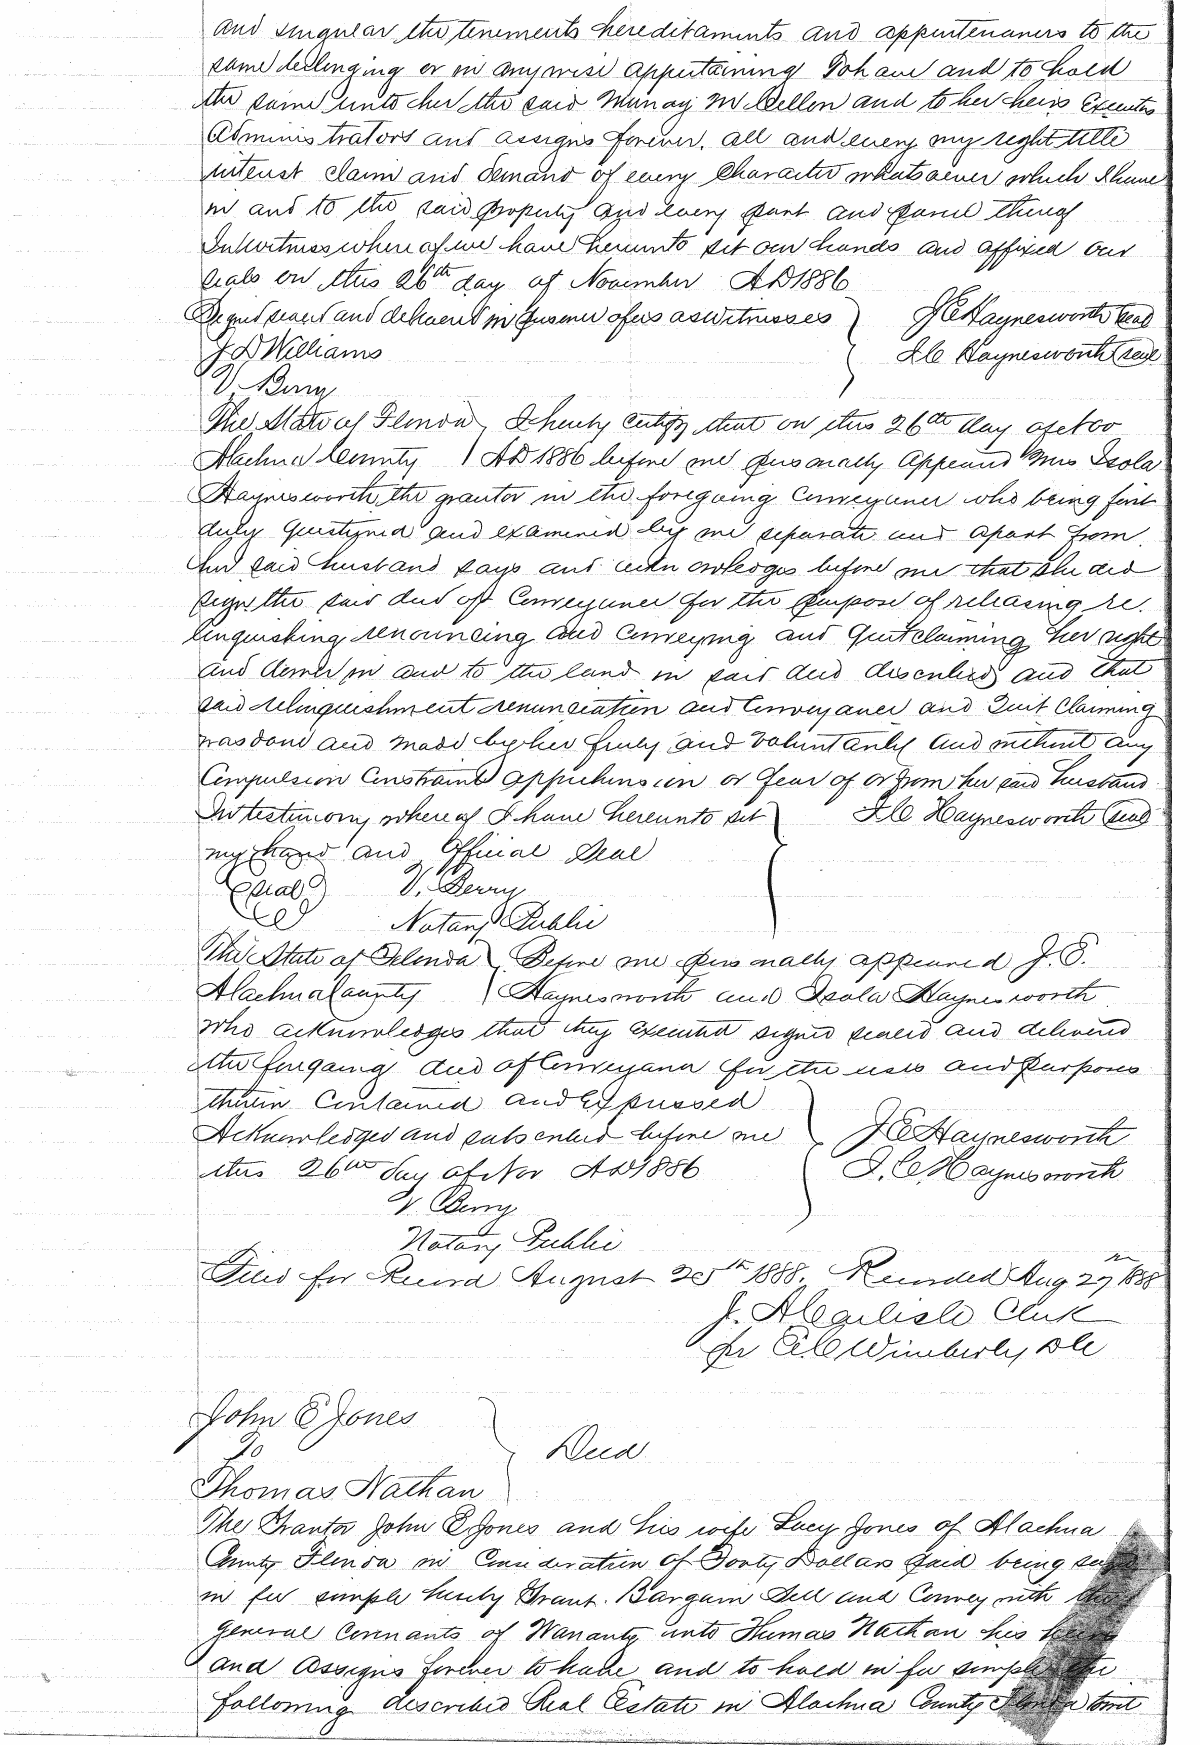 and singular the tenements hereditaments and appurtenances to the
same belonging or in anywise appertaining To have and to hold
the same unto her the said McCellon and to her heirs Executrs
Administrators and assigns forever. all and every my right title
interest claim and demand of every character whatsoever which I have
in and to the said property and every part and parcel thereof
In witness whereof we have hereunto set our hands and affixed our
seals on this 26th day of November AD 1886
Signed sealed and delivered in presence of us as witnesses J E Haynesworth seal
J D Williams I C Haynesworth seal
V. Berry
The State of Florida I hereby certify that on this 26th day of Nov
Alachua County AD 1886 before me personally appeared Mrs Isola
Haynesworth the grantor in the foregoing Conveyance who being first
duly questioned and examined by me separate and apart from
her said husband says and acknowledges before me that she did
sign the said deed of Conveyance for the purpose of releasing re.
linquishing renouncing and Conveying and Quitclaiming her right
and dower in and to the land in said deed described and that
said relinquishment renunciation and Conveyance and Quit Claiming
was done and made by her freely and voluntarily and without any
Compulsion Constraint apprehension or fear of or from her said husband
In testimony whereof I have hereunto set I C Haynesworth seal
my hand and Official Seal
seal V. Berry
Notary Public
The State of Florida Before me personally appeared J. E.
Alachua County Haynesworth and Isola Haynesworth
who acknowledges that they executed signed sealed and delivered
the foregoing deed of Conveyance for the uses and purposes
therein Contained and Expressed
Acknowledged and subscribed before me J E Haynesworth
this 26th day of Nov AD 1886 I. C. Haynesworth
V Berry
Notary Public
Filed for Record August 25th 1888. Recorded Aug 27th 1888
J. A Carlisle Clerk
pr C C Wimberly DC
John E Jones
To Deed
Thomas Nathan
The Grantor John E Jones and his wife Lucy Jones of Alachua
County Florida in Consideration of Forty Dollars paid being
in fee simple hereby Grant. Bargain Sell and Convey with the
general Covenants of Warranty unto Thomas Nathan his heirs
and Assigns forever to have and to hold in fee simple the
following described Real Estate in Alachua County Florida